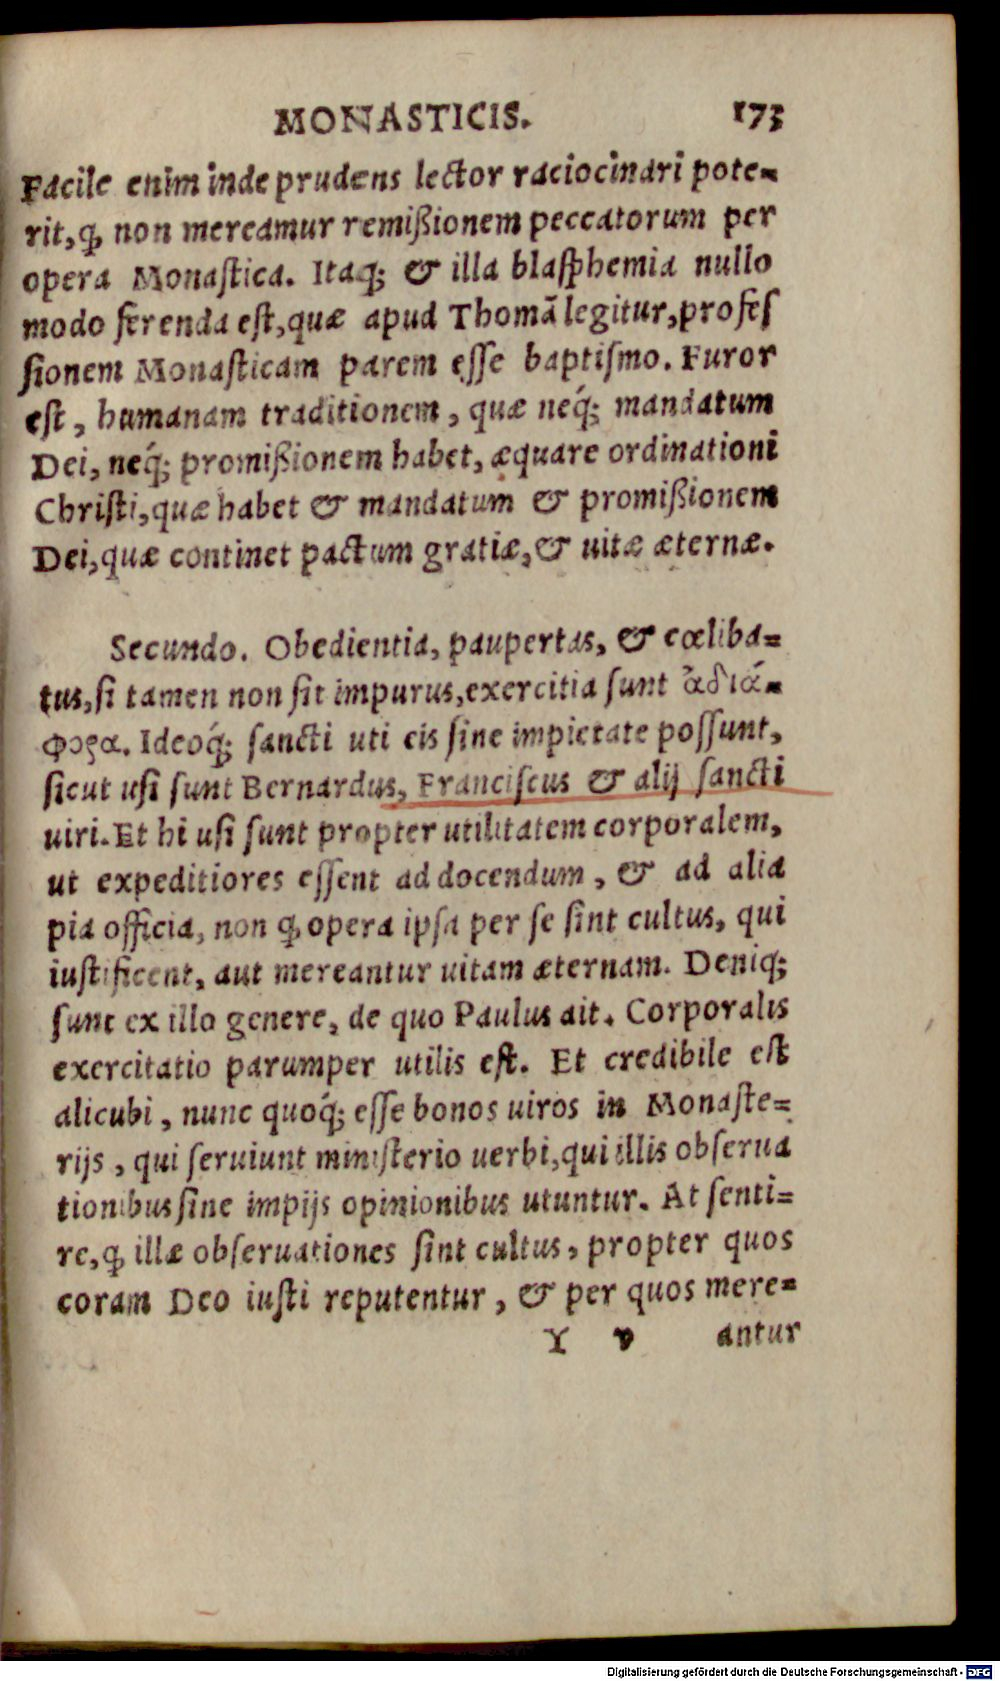 MONASTICIS. 173
Facile enim inde prudens lector raciocinari pote-
rit, ꝙ non mereamur remißionem peccatorum per
opera Monaſtica. Itaq; & illa blaſphemia nullo
modo ferenda eſt, quæ apud Thomā legitur, profeſ
ſionem Monaſticam parem eſſe baptiſmo. Furor
eſt, humanam traditionem, quæ neq́; mandatum
Dei, neq́; promißionem habet, æquare ordinationi
Chriſti, quæ habet & mandatum & promißionem
Dei, quæ continet pactum gratiæ, & uitæ æternæ.
Secundo. Obedientia, paupertas, & cœliba-
tus, ſi tamen non ſit impurus, exercitia ſunt ἀδιά-
φορα. Ideoq́; ſancti uti eis ſine impietate poſſunt,
ſicut uſi ſunt Bernardus, Franciſcus & alij ſancti
uiri. Et hi uſi ſunt propter utilitatem corporalem,
ut expeditiores eſſent ad docendum, & ad alia
pia officia, non ꝙ opera ipſa per ſe ſint cultus, qui
iuſtificent, aut mereantur uitam æternam. Deniq;
ſunt ex illo genere, de quo Paulus ait. Corporalis
exercitatio parumper utilis eſt. Et credibile eſt
alicubi, nunc quoq́; eſſe bonos uiros in Monaſte-
rijs, qui ſeruiunt miniſterio uerbi, qui illis obſerua
tionibus ſine impijs opinionibus utuntur. At ſenti-
re, ꝙ illæ obſeruationes ſint cultus, propter quos
coram Deo iuſti reputentur, & per quos mere-
Y v antur
Digitalisierung gefördert durch die Deutsche Forschungsgemeinschaft - DFG